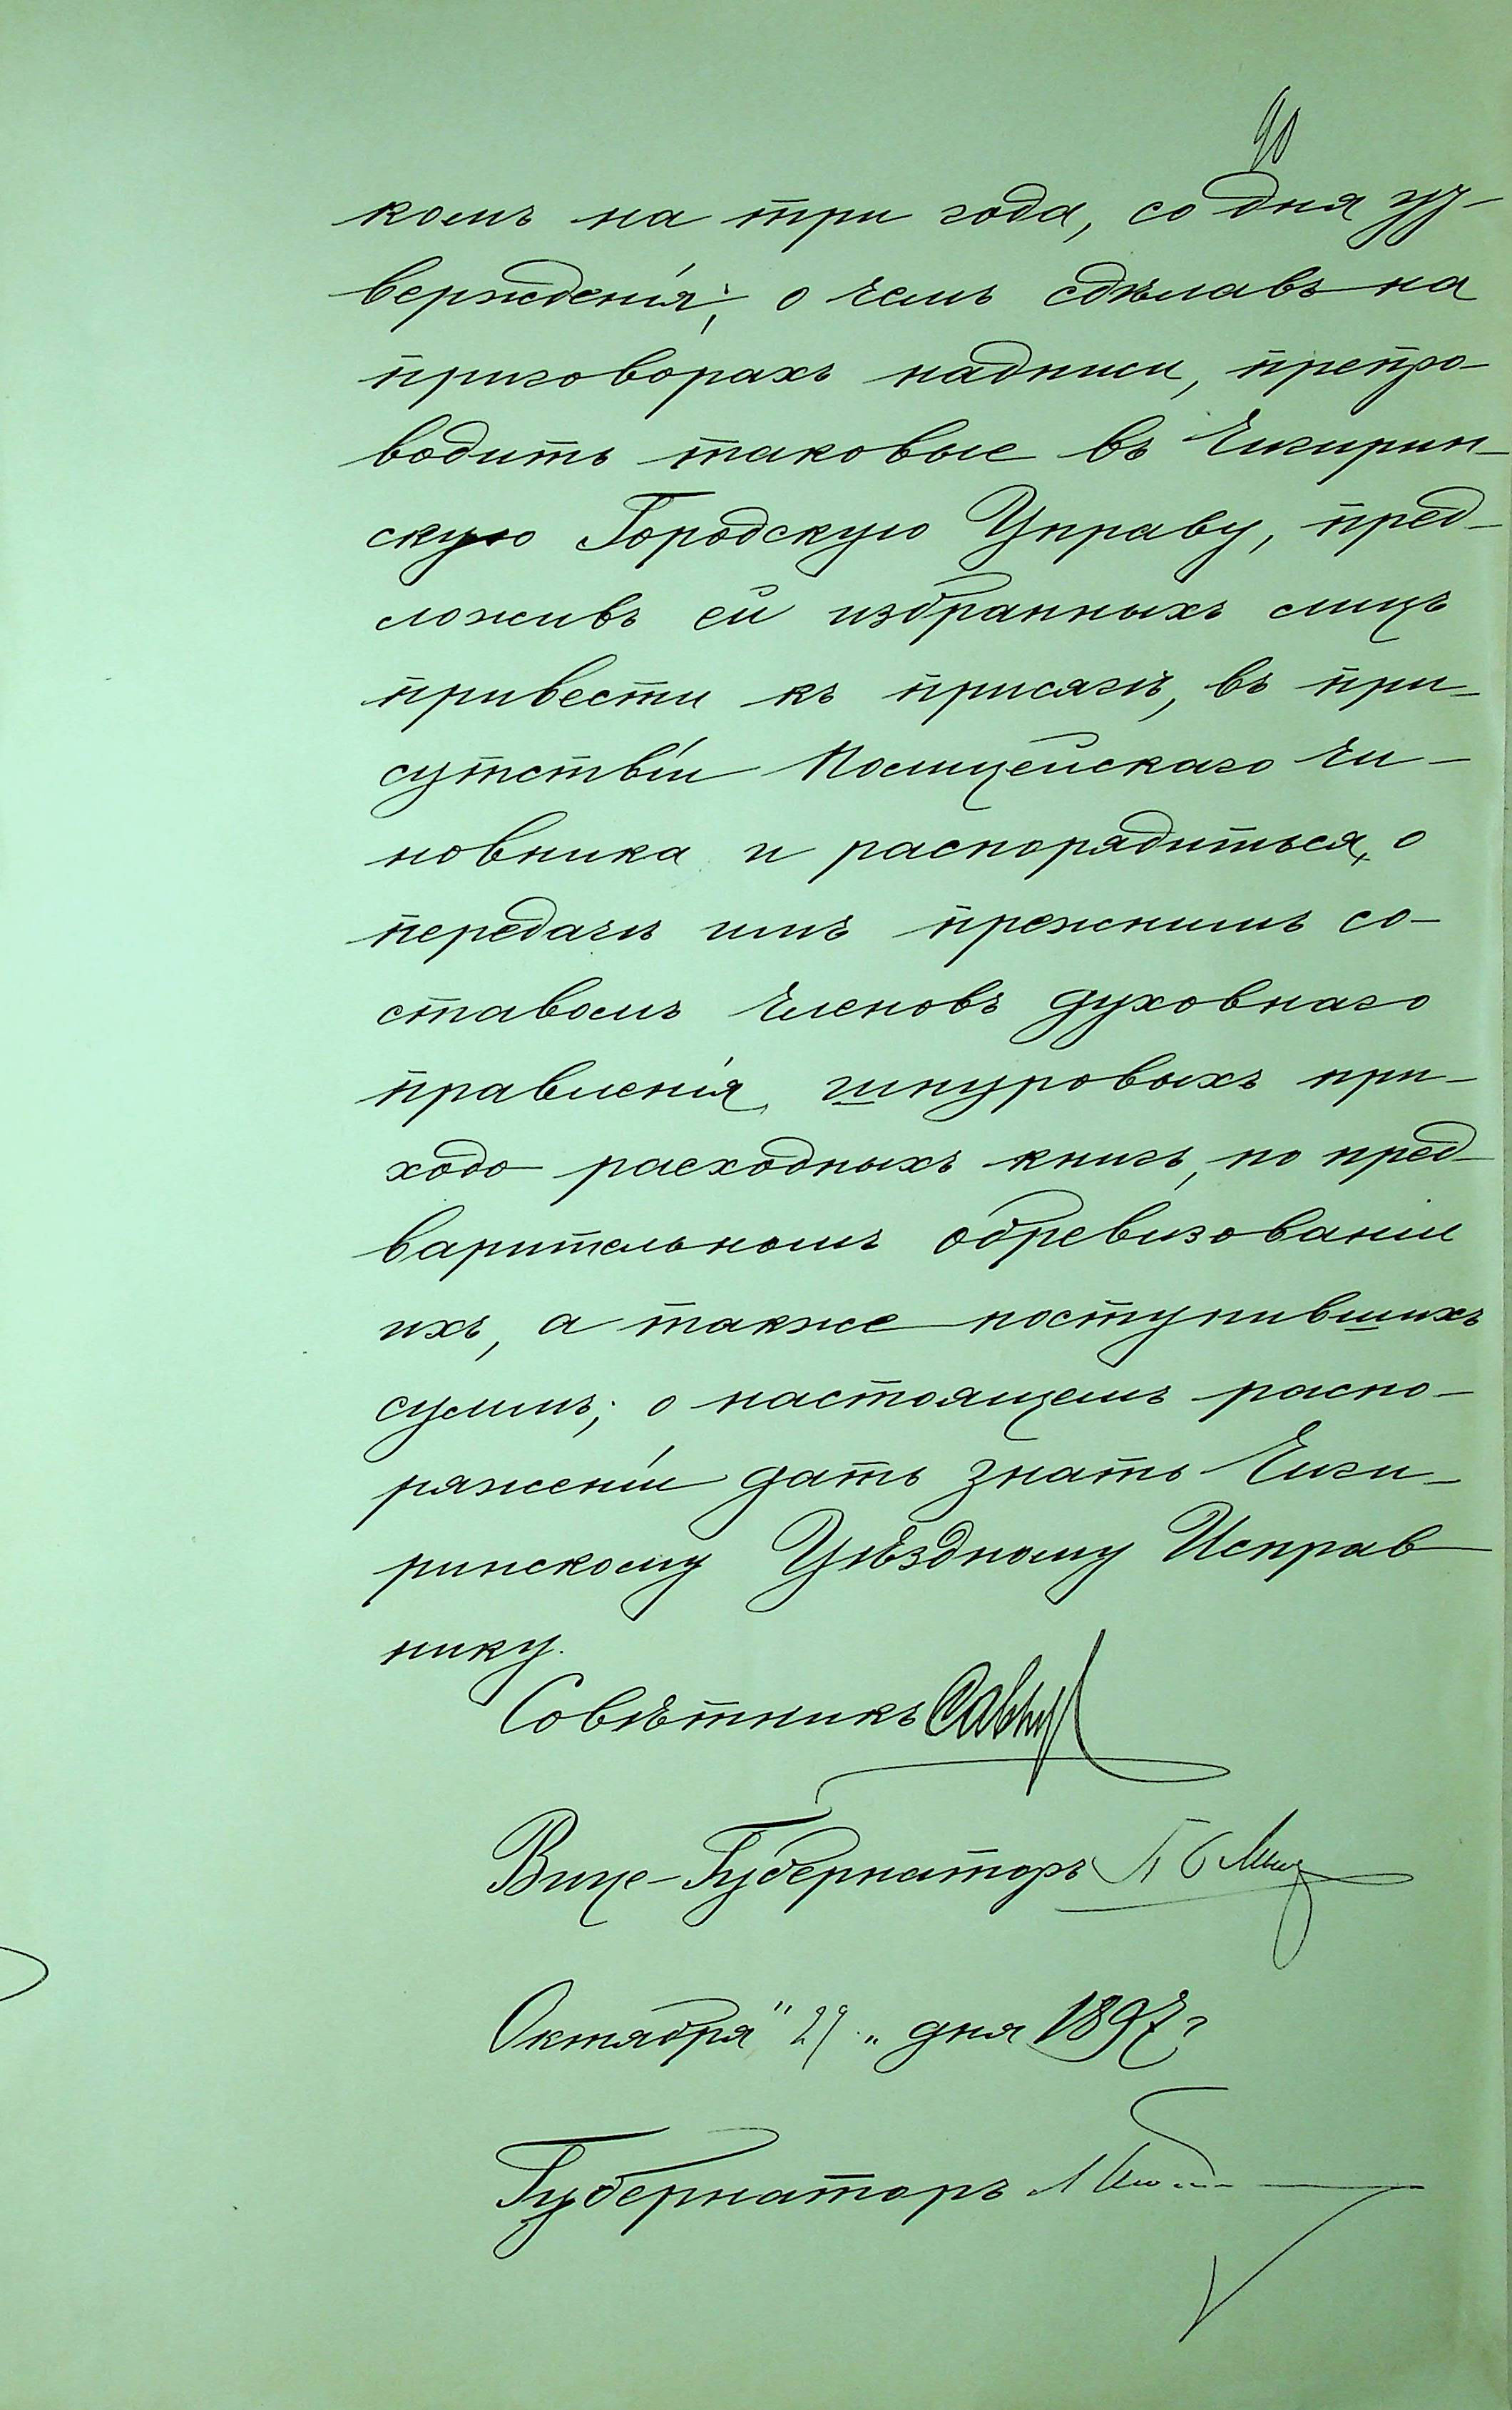 90
комъ на три года, со дня ут-
вержденія; о чемъ сдѣлавъ на
приговорахъ надписи, препро-
водить таковые въ Чигирин-
скую Городскую Управу, пред-
ложивъ ей избранныхъ лицъ
привести къ присягѣ, въ при-
сутствіи Полицейскаго Чи-
новника и распорядиться, о
передачѣ имъ прежнимъ со-
ставомъ Членовъ духовнаго
правленія шнуровыхъ при-
ходо расходныхъ книгъ, по пред-
варительномъ обревизованіи
ихъ, а также поступившихъ
суммъ; о настоящемъ распо-
ряженіи дать знать Чиги-
ринскому Уѣздному Исправ-
нику.
Совѣтникъ
Вице-Губернаторъ
Октября "29" дня 1897 г
Губернаторъ